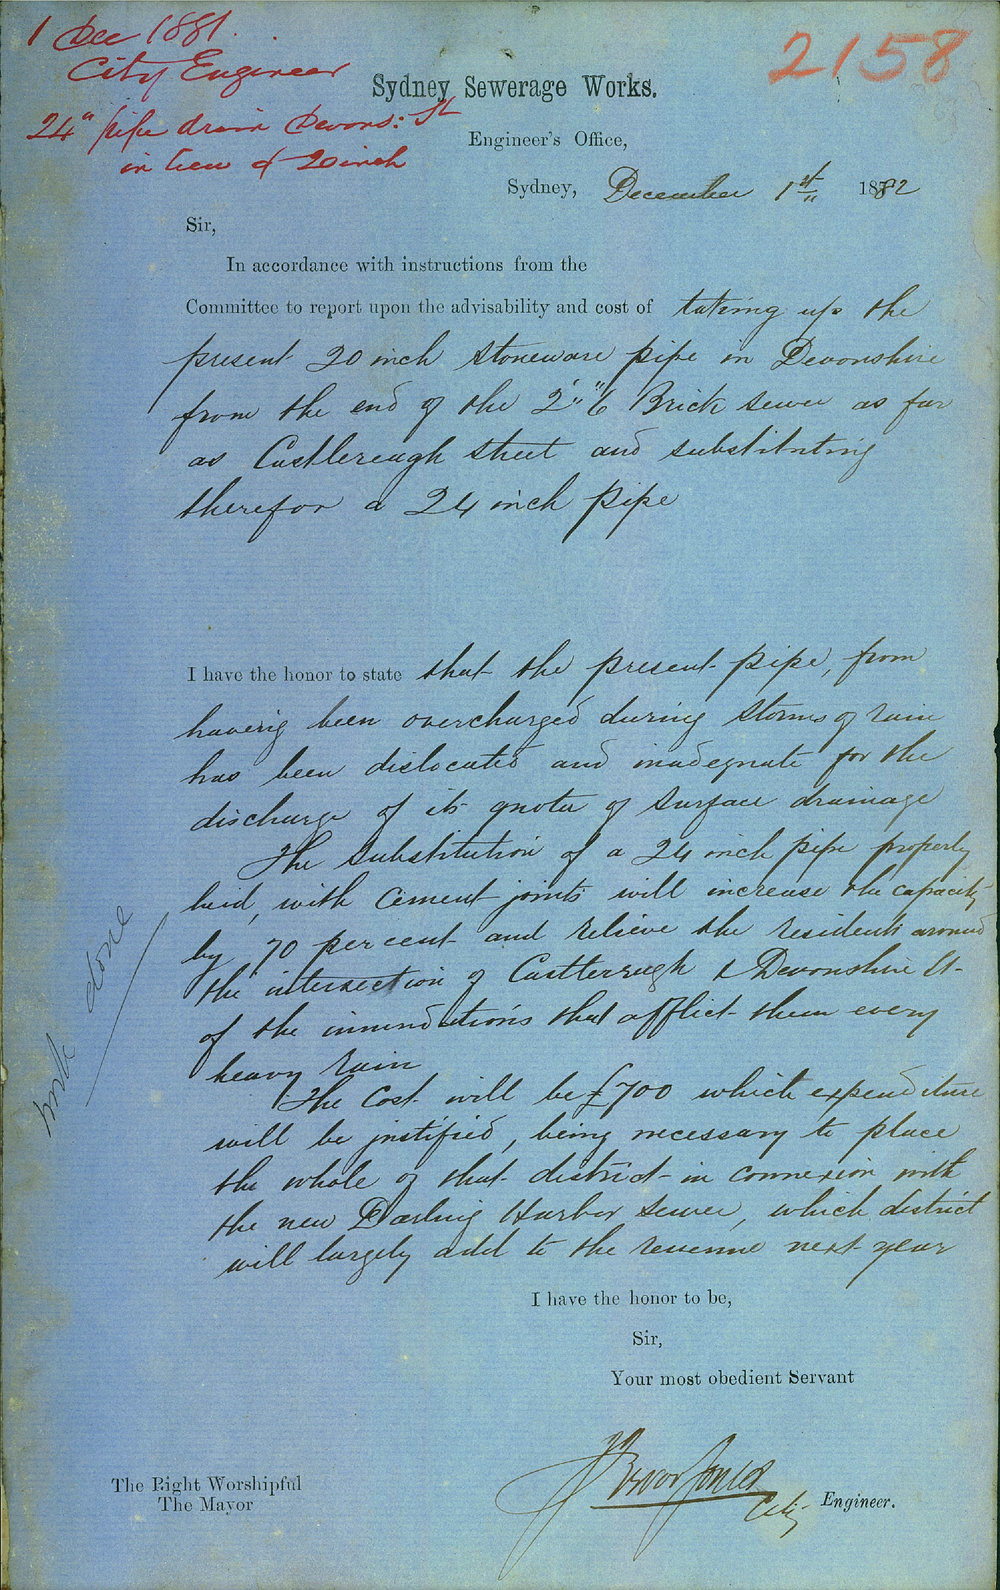 1 Dec 1881.
City Engineer
24" pipe drain Devons: St
in lieu of 20 inch
2158
Sydney Sewerage Works.
Engineer's Office,
Sydney, December 1st 1882
Sir,
In accordance with instructions from the
Committee to report upon the advisability and cost of taking up the
present 20 inch stoneware pipe in Devonshire
from the end of the 2'.."6 Brick sewer as far
as Castlereagh street and substituting
therefor a 24 inch pipe
I have the honor to state that the present pipe, from
having been overcharged during storms of rain
has been dislocated and inadequate for the
discharge of its quota of surface drainage
The substitution of a 24 inch pipe properly
laid, with cement joints will increase the capacity
by 70 per cent and relieve the residents around
the intersection of Castlereagh & Devonshire St
of the innundations that afflict them every
heavy rain
The Cost will be £700 which expenditure
will be justified, being necessary to place
the whole of that district in connexion with
the new Darling Harbor sewer, which district
will largely add to the revenue next year
done
I have the honor to be,
Sir,
Your most obedient Servant
Trevor Jones
City Engineer.
The Right Worshipful
The Mayor